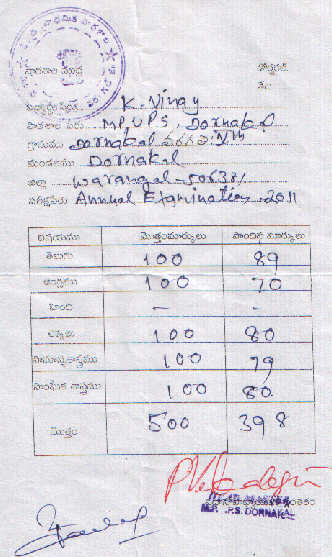 పాఠశాల ముద్ర
విద్యార్థి పేరు K. Vinay
పాఠశాల పేరు M.P.U.P.S, Dornakal
గ్రామము Dornakal తరగతి VIIth
మండలము Dornakal
జిల్లా Warangal-506381
పరీక్షపేరు Annual Examination-2011
విషయము మొత్తంమార్కులు పొందిన మార్కులు
తెలుగు 100 89
ఆంగ్లము 100 70
హింది - -
లెక్కలు 100 80
సామాన్యశాస్త్రము 100 79
సాంఘీక శాస్త్రము 100 80
మొత్తం 500 398
HEAD MASTER
M.P. .P.S. DORNAKAL